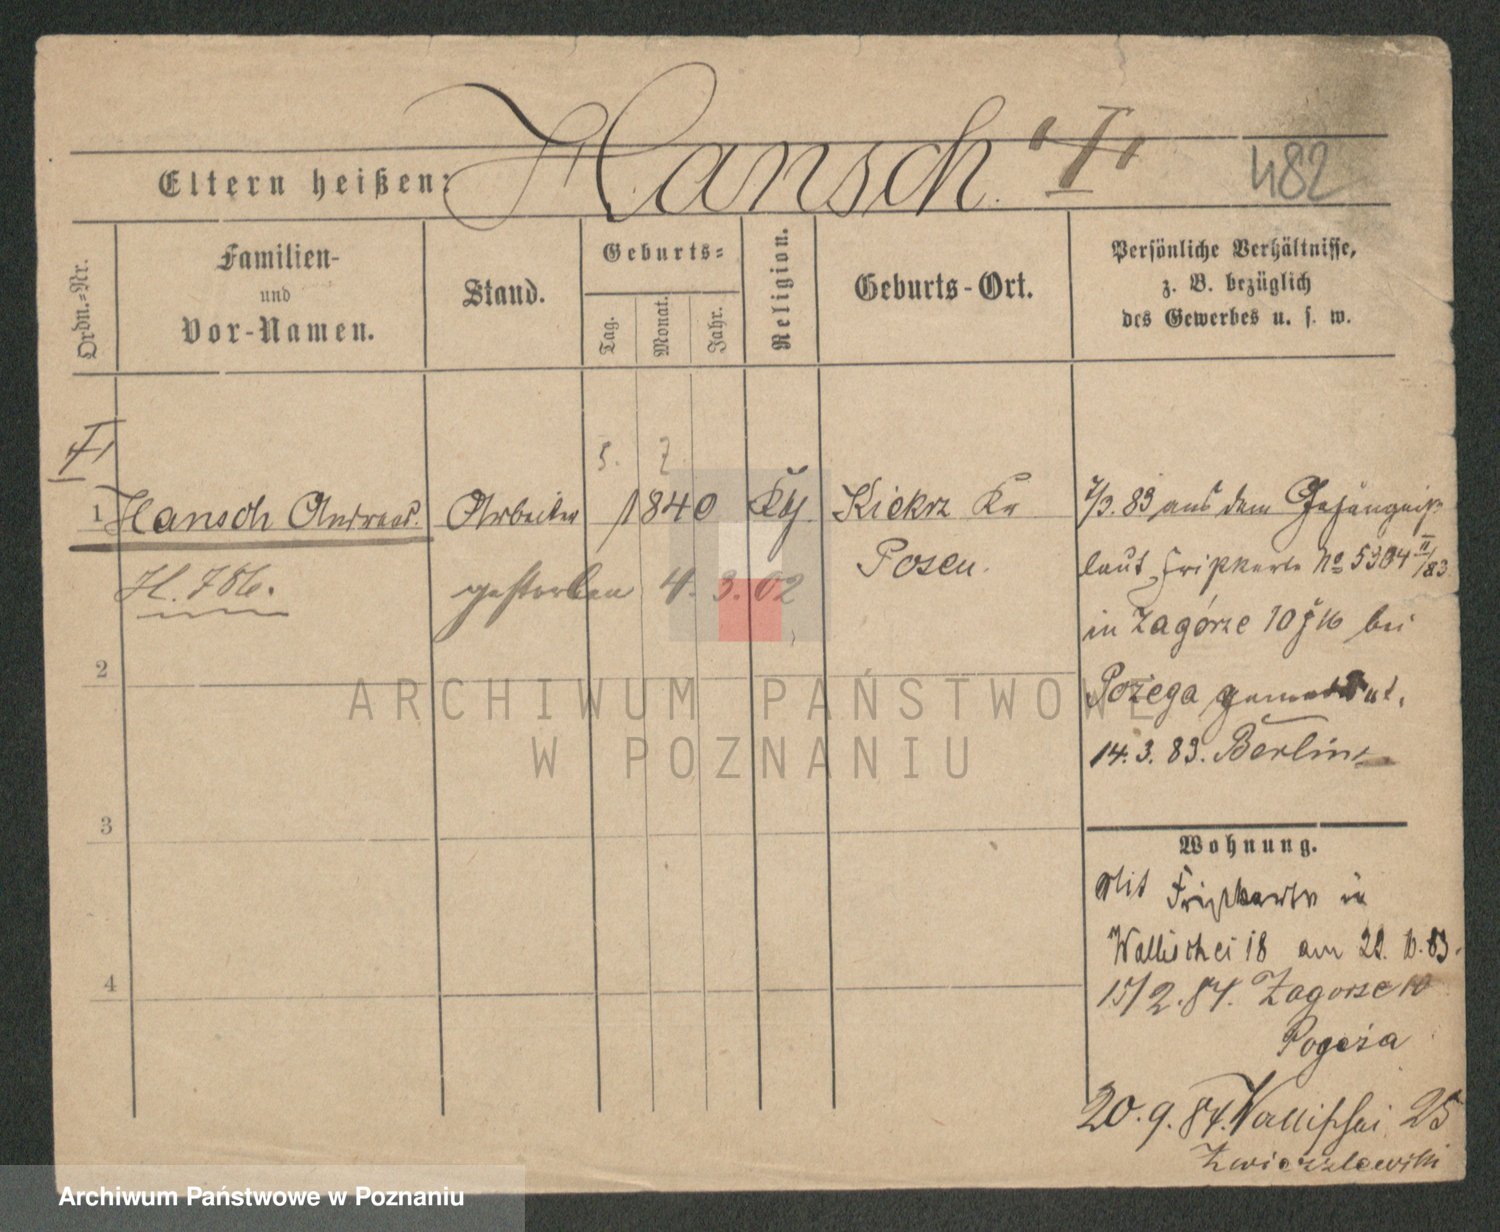 Eltern heißen: Hansch. I
482
Ordn.-Nr.
Familien-
und
Vor-Namen.
Stand.
Geburts-
Tag.
Monat.
Jahr.
Religion.
Geburts-Ort.
Persönliche Verhältnisse,
z. B. bezüglich
des Gewerbes u. s. w.
5. 7
1 Hansch Andreas. Arbeiter 1840 Kth. Kiekrz Kr
Posen.
H. 786.
gestorben 4. 3. 02
7/3. 83 aus dem Gefängniß
laut Fripkarte No 5304 II/83
in Zagórze 10 bei
Pożega gemeldet.
14. 3. 83. Berlin
2
3
4
Wohnung.
Mit Fripkarte in
Wallischei 18 am 22. 10. 83.
15/2. 84. Zagorze 10
Pogeża
20. 9. 84. Wallischei 25
ARCHIWUM PAŃSTWOWE
W POZNANIU
Archiwum Państwowe w Poznaniu